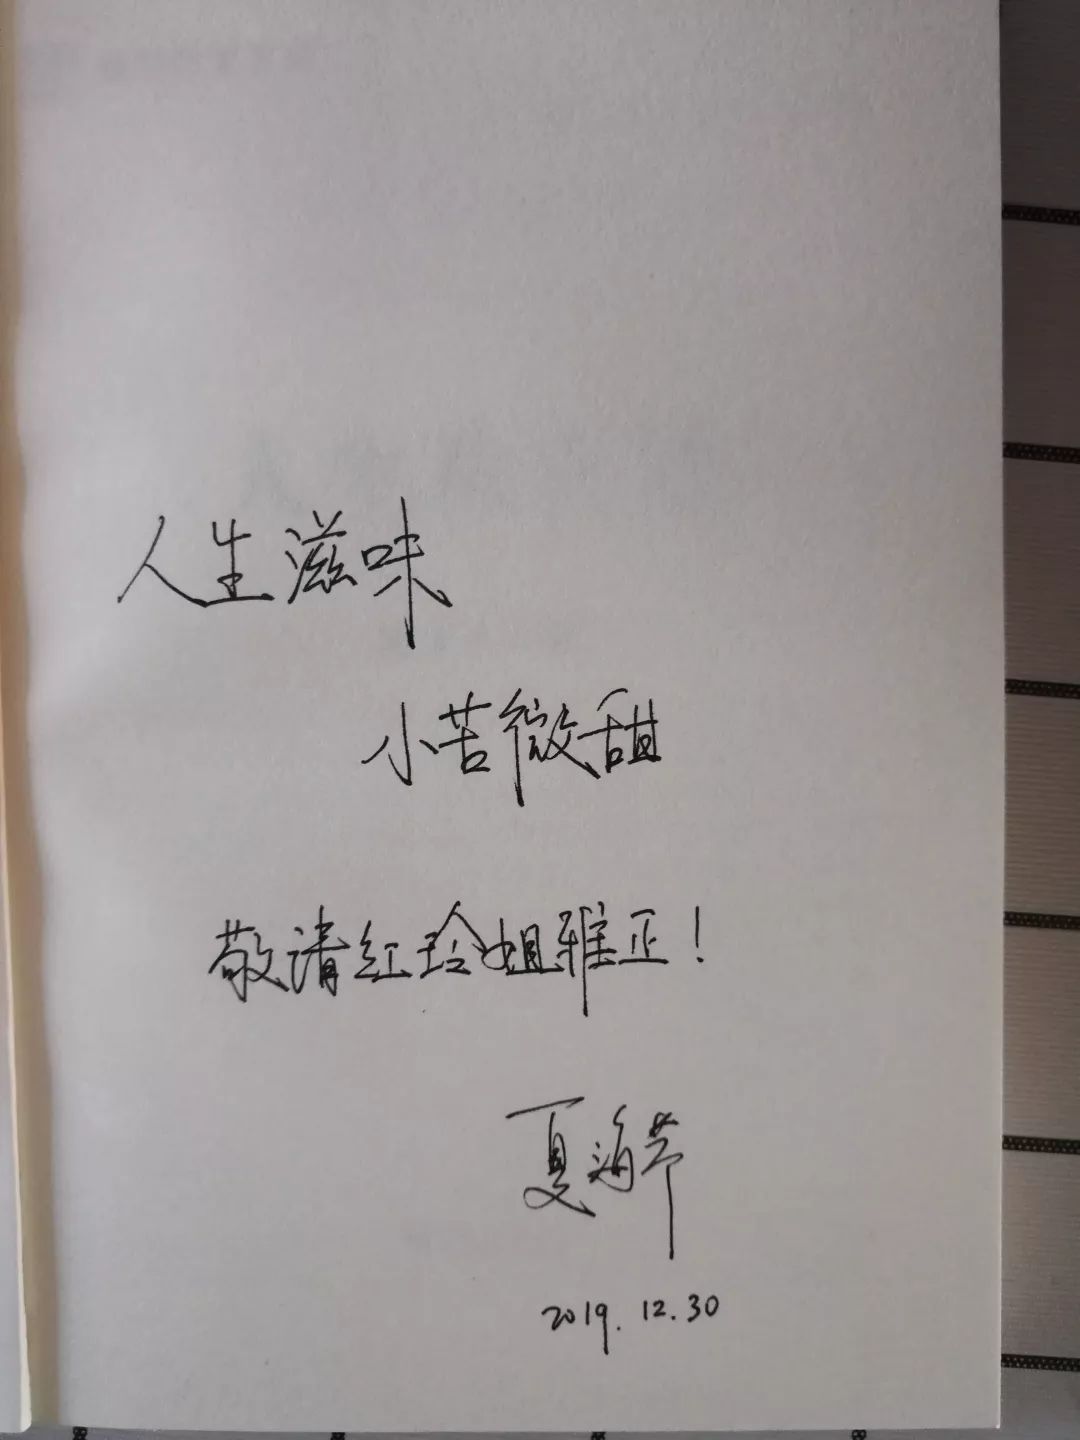 人生滋味
小苦微甜
敬请红玲姐雅正！
夏海芹
2019.12.30